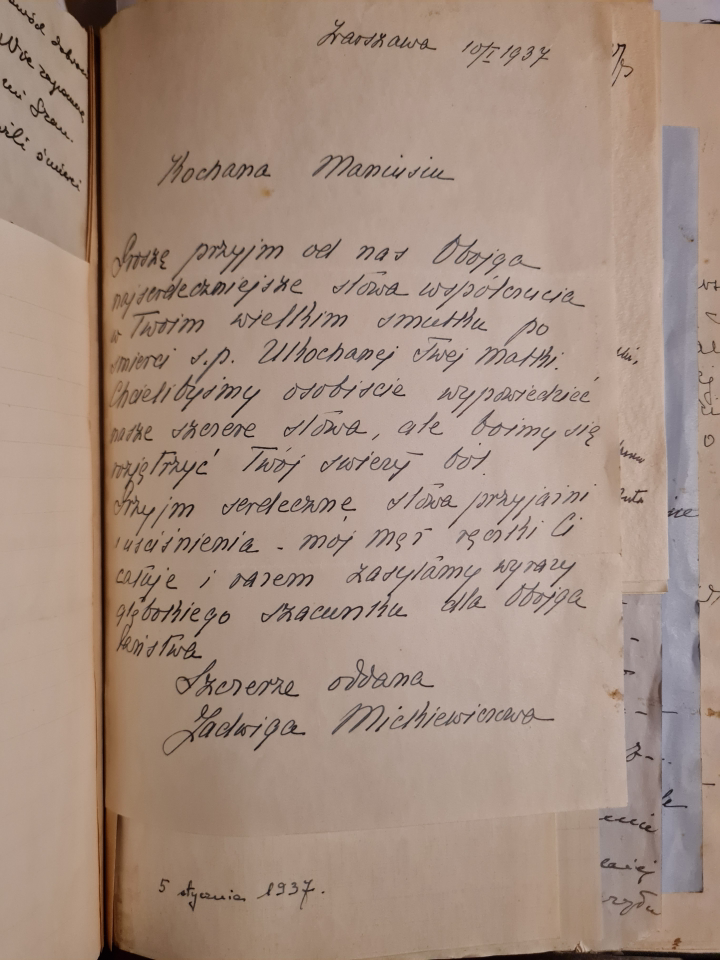 Warszawa 10/I 1937
Kochana Maniusiu
Proszę przyjm od nas Obojga
najserdeczniejsze słowa współczucia
w Twoim wielkim smutku po
śmierci ś.p. Ukochanej Twej Matki.
Chcielibyśmy osobiście wypowiedzieć
nasze szczere słowa, ale boimy się
rozjątrzyć Twój świeży ból.
Przyjm serdeczne słowa przyjaźni
i uściśnienia - mój mąż rączki Ci
całuje i razem zasyłamy wyrazy
głębokiego szacunku dla Obojga
Państwa
Szczerze oddana
Jadwiga Mickiewiczowa
5 stycznia 1937.